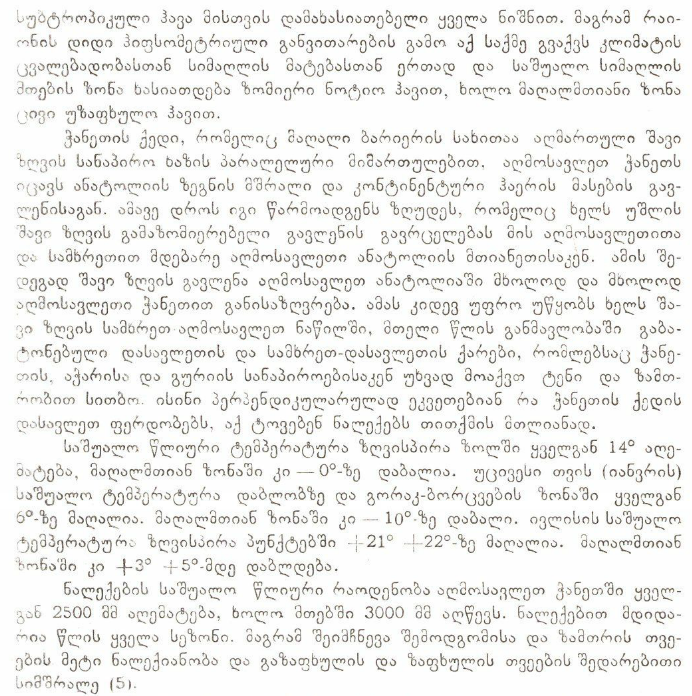 სუბტროპიკული ჰავა მისთვის დამახასიათებელი ყველა ნიშნით. მაგრამ რაი-
ონის დიდი ჰიფსომეტრიული განვითარების გამო აქ საქმე გვაქვს კლიმატის
ცვალებადობასთან სიმაღლის მატებასთან ერთად და საშუალო სიმაღლის
მთების ზონა ხასიათდება ზომიერი ნოტიო ჰავით, ხოლო მაღალმთიანი ზონა
ცივი უზაფხულო ჰავით.
ჭანეთის ქედი, რომელიც მაღალი ბარიერის სახითაა აღმართული შავი
ზღვის სანაპირო ხაზის პარალელური მიმართულებით. აღმოსავლეთ ჭანეთს
იცავს ანატოლიის ზეგნის მშრალი და კონტინენტური ჰაერის მასების გავ-
ლენისაგან. ამავე დროს იგი წარმოადგენს ზღუდეს, რომელიც ხელს უშლის
შავი ზღვის გამაზომიერებელი გავლენის გავრცელებას მის აღმოსავლეთითა
და სამხრეთით მდებარე აღმოსავლეთი ანატოლიის მთიანეთისაკენ. ამის შე-
დეგად შავი ზღვის გავლენა აღმოსავლეთ ანატოლიაში მხოლოდ და მხოლოდ
აღმოსავლეთი ჭანეთით განისაზღვრება. ამას კიდევ უფრო უწყობს ხელს შა-
ვი ზღვის სამხრეთ-აღმოსავლეთ ნაწილში, მთელი წლის განმავლობაში გაბა-
ტონებული დასავლეთის და სამხრეთ-დასავლეთის ქარები, რომლებსაც ჭანე-
თის, აჭარისა და გურიის სანაპიროებისაკენ უხვად მოაქვთ ტენი და ზამთ-
რობით სითბო. ისინი პერპენდიკულარულად ეკვეთებიან რა ჭანეთის ქედის
დასავლეთ ფერდობებს, აქ ტოვებენ ნალექებს თითქმის მთლიანად.
საშუალო წლიური ტემპერატურა ზღვისპირა ზოლში ყველგან 14° აღე-
მატება, მაღალმთიან ზონაში კი — 0°-ზე დაბალია. უცივესი თვის (იანვრის)
საშუალო ტემპერატურა დაბლობზე და გორაკ-ბორცვების ზონაში ყველგან
6°-ზე მაღალია. მაღალმთიან ზონაში კი — 10°-ზე დაბალი. ივლისის საშუალო
ტემპერატურა ზღვისპირა პუნქტებში +21° +22°-ზე მაღალია. მაღალმთიან
ზონაში კი +3° +5°-მდე დაბლდება.
ნალექების საშუალო წლიური რაოდენობა აღმოსავლეთ ჭანეთში ყველ-
გან 2500 მმ აღემატება, ხოლო მთებში 3000 მმ აღწევს. ნალექებით მდიდა-
რია წლის ყველა სეზონი. მაგრამ შეიმჩნევა შემოდგომისა და ზამთრის თვე-
ების მეტი ნალექიანობა და გაზაფხულის და ზაფხულის თვეების შედარებითი
სიმშრალე (5).